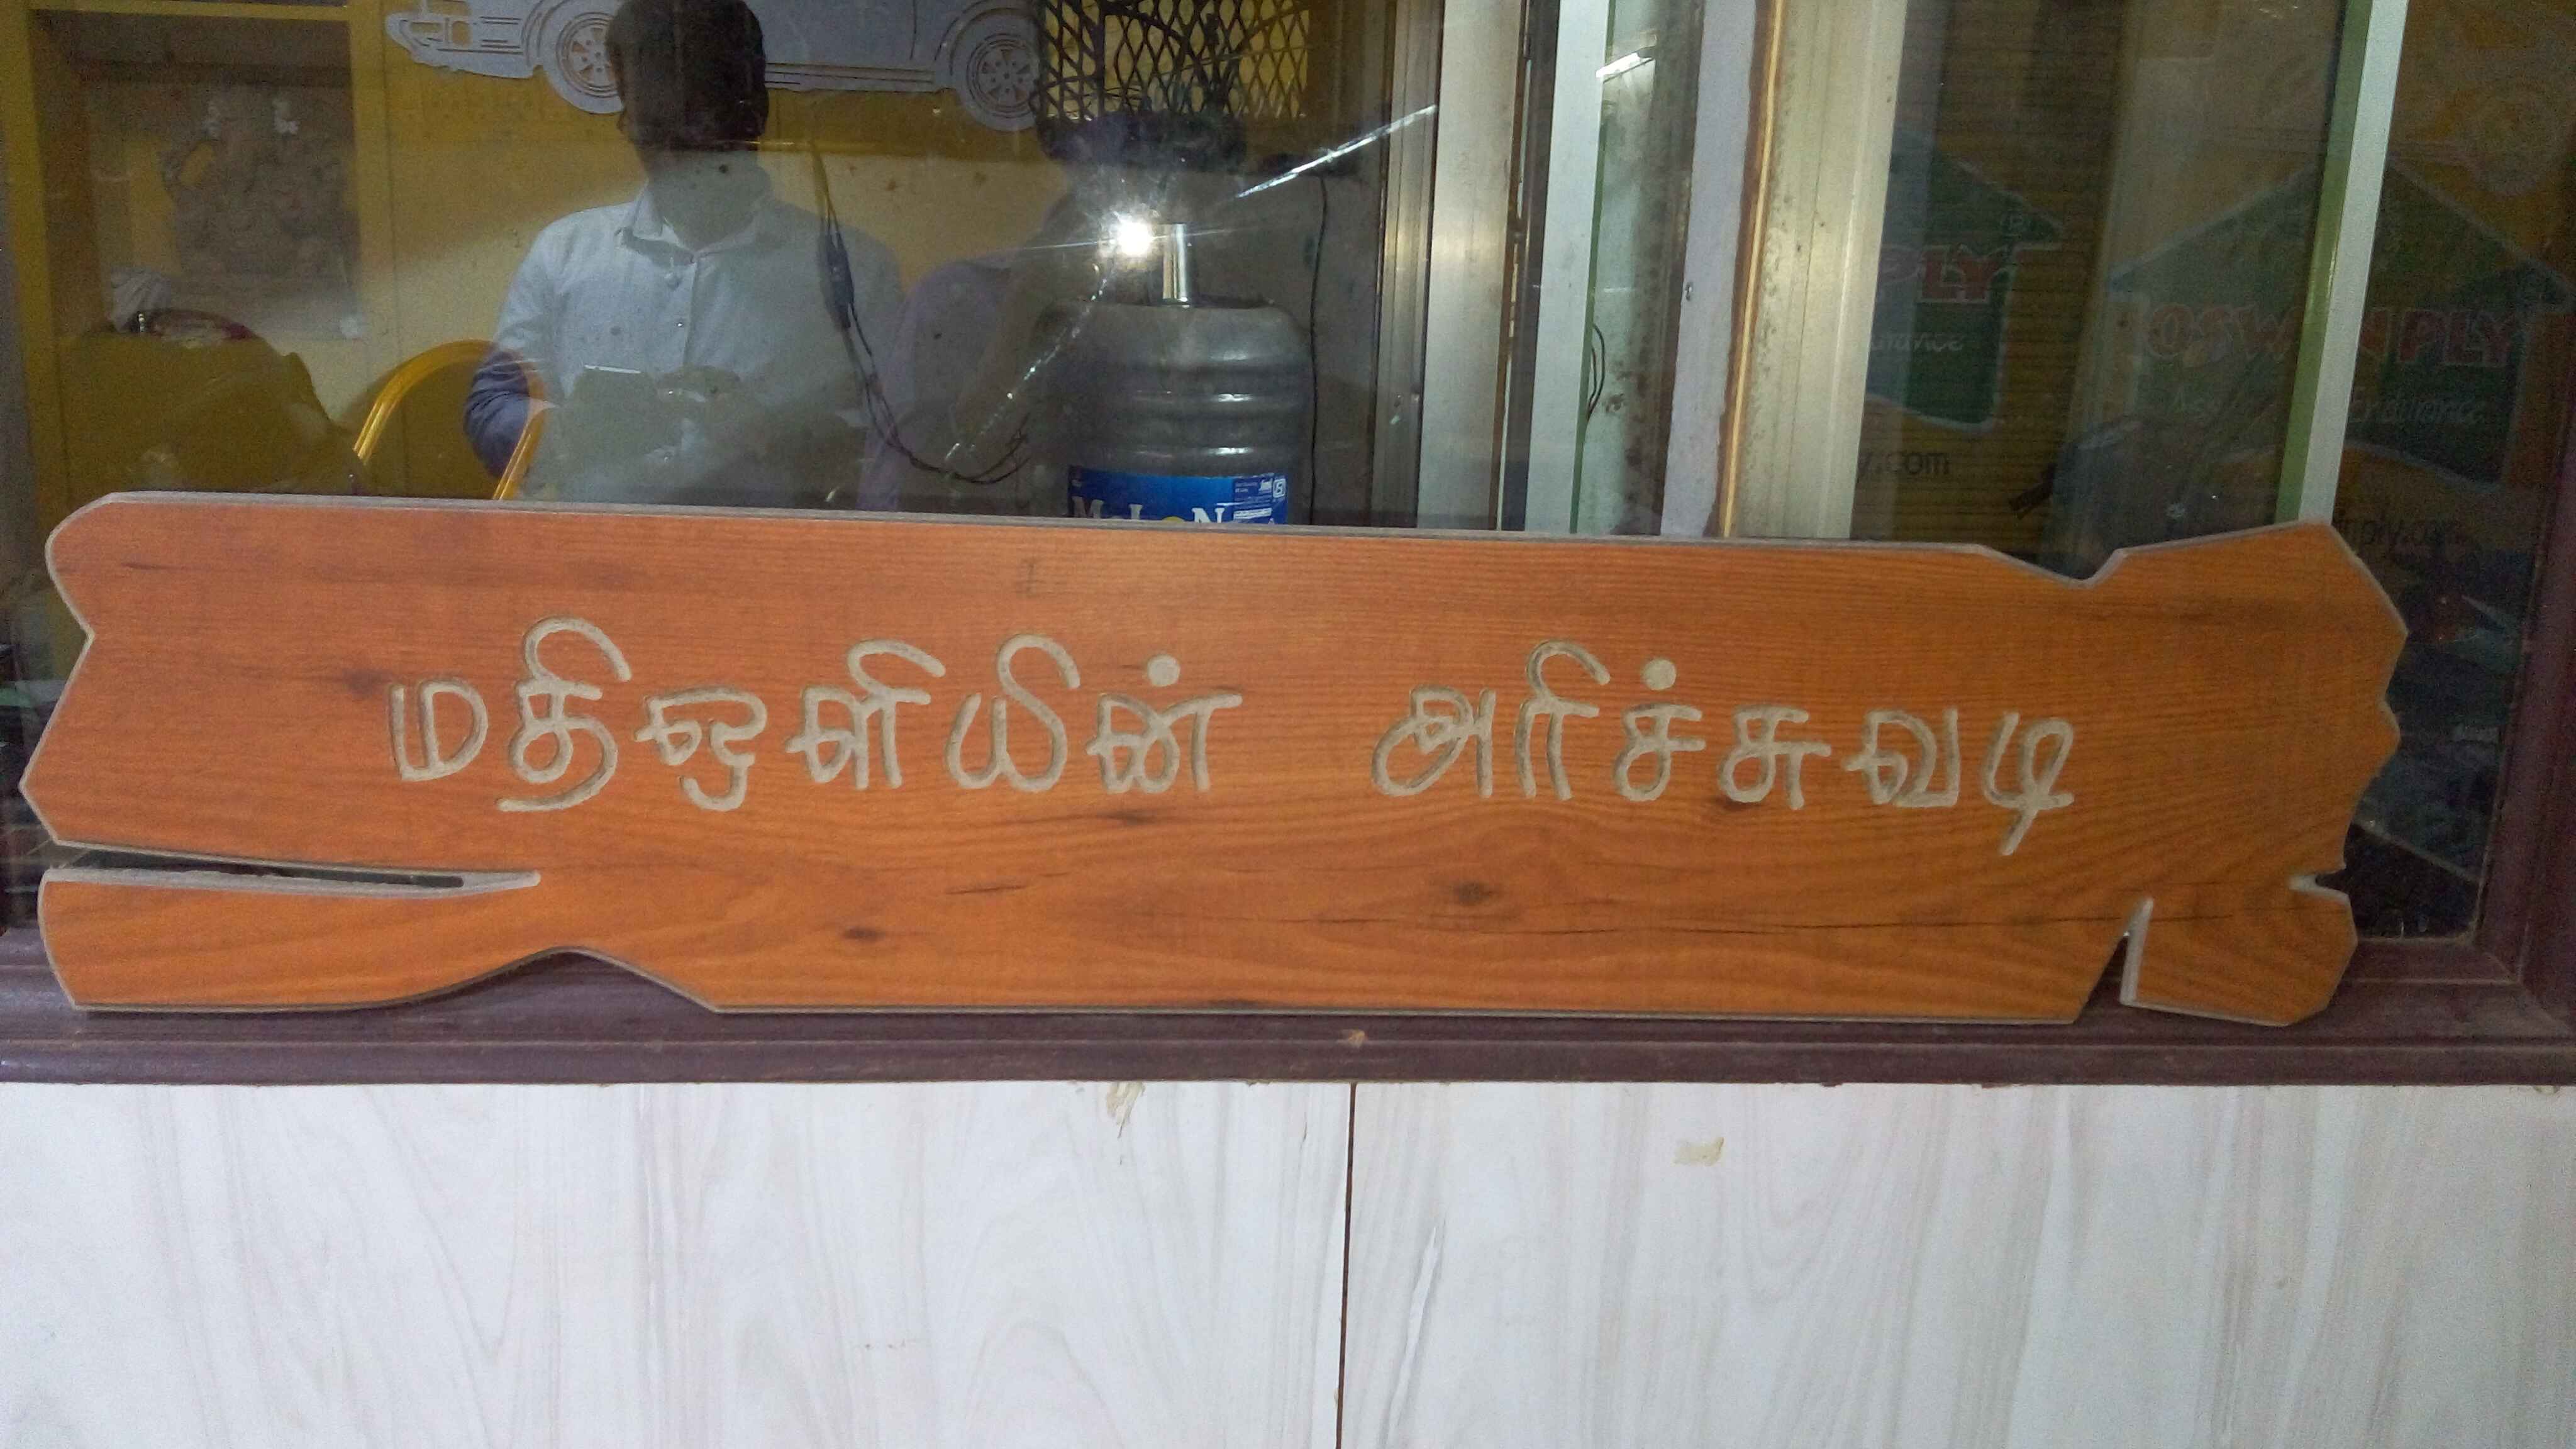 மதிஒளியின் அரிச்சுவடி
PLY
OSWAN PLY